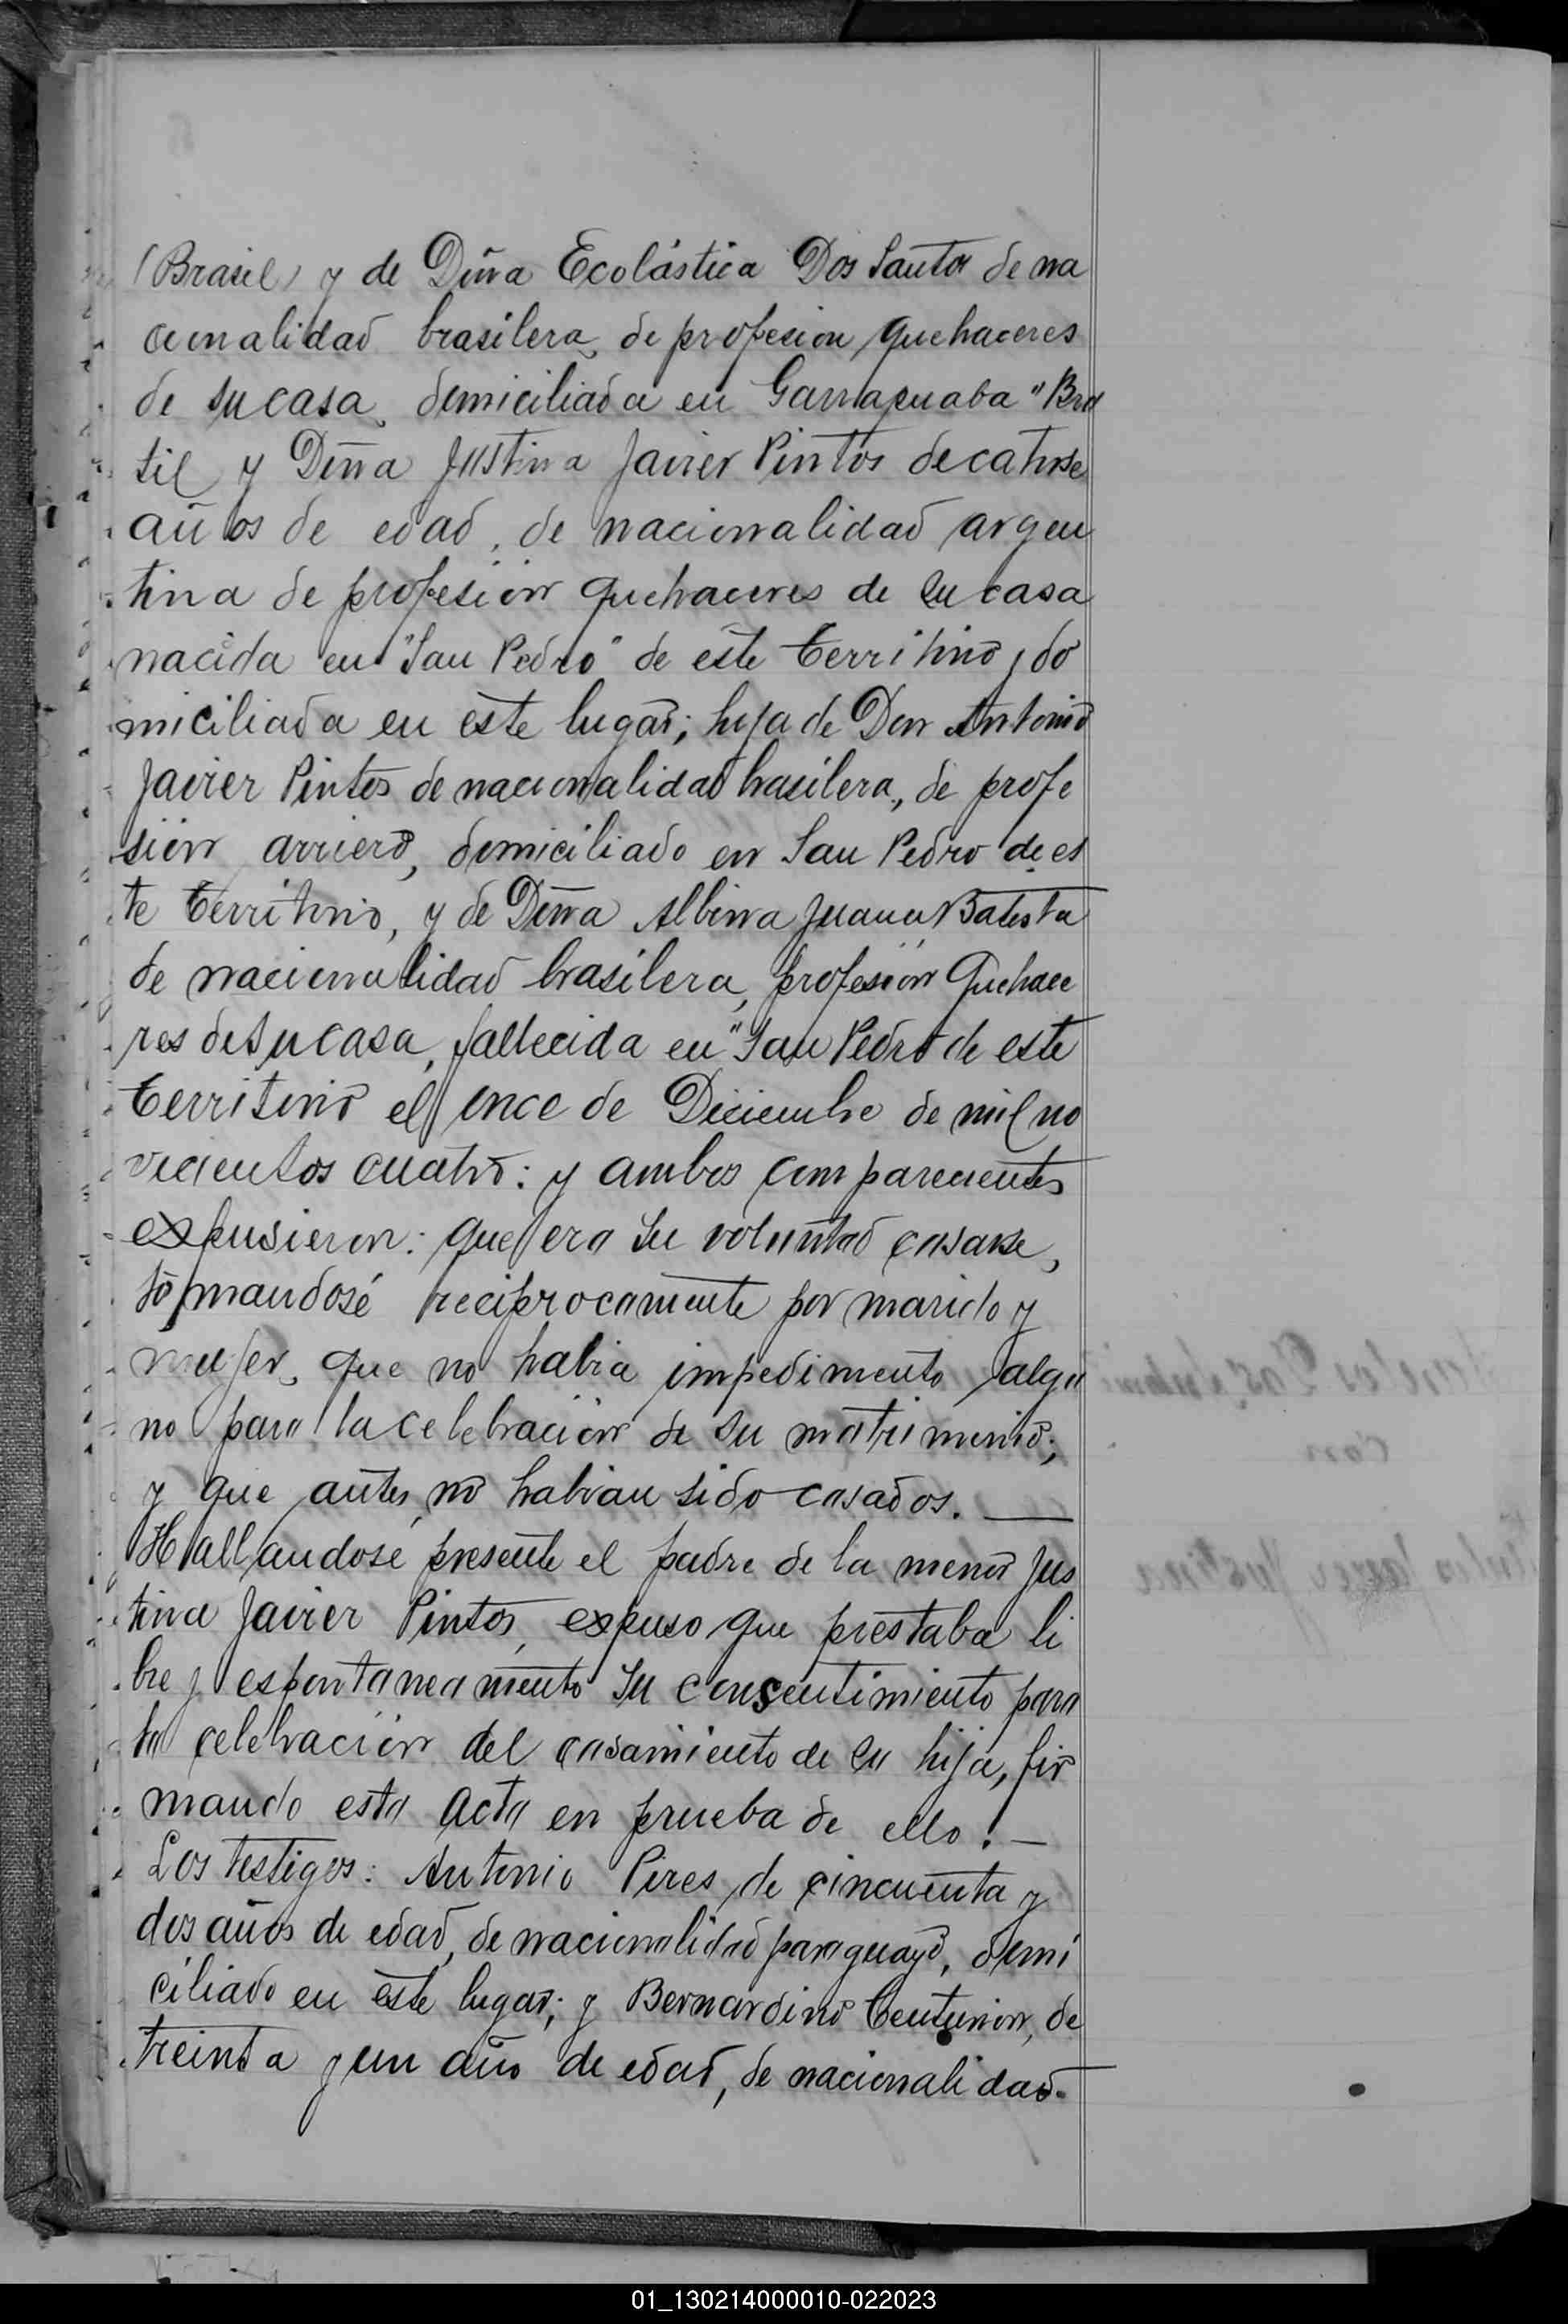 (Brasil) y de Doña Ecolástica Dos Santos de na
cionalidad brasilera, de profesion quehaceres
de su casa, domiciliada en Garrapuaba "Bra
sil y Doña Justina Javier Pintos de catorse
años de edad, de nacionalidad argen
tina de profesión quehaceres de su casa
nacida en "San Pedro" de este territorio, do
miciliada en este lugar; hija de Don Antonio
Javier Pintos de nacionalidad brasilera, de profe
sión arriero, domiciliado en San Pedro de es
te territorio, y de Doña Albina Juana Batista
de nacionalidad brasilera, profesión quehace
res de su casa, fallecida en "San Pedro de este
territorio el once de Diciembre de mil no
vecientos cuatro: y ambos comparecientes
expusieron: que era su voluntad casarse,
tomandosé reciprocamente por marido y
mujer, que no habia impedimento algu
no para la celebración de su matrimonio;
y que antes no habian sido casados. —
Hallandose presente el padre de la menor Jus
tina Javier Pintos, expuso que prestaba li
bre y espontaneamento su consentimiento para
la celebración del casamiento de su hija, fir
mando esta acta en prueba de ello. —
Los testigos: Antonio Pires de cincuenta y
dos años de edad, de nacionalidad paraguayo, domi
ciliado en este lugar; y Bernardino Centurion, de
treinta y un año de edad, de nacionalidad
01_130214000010-022023